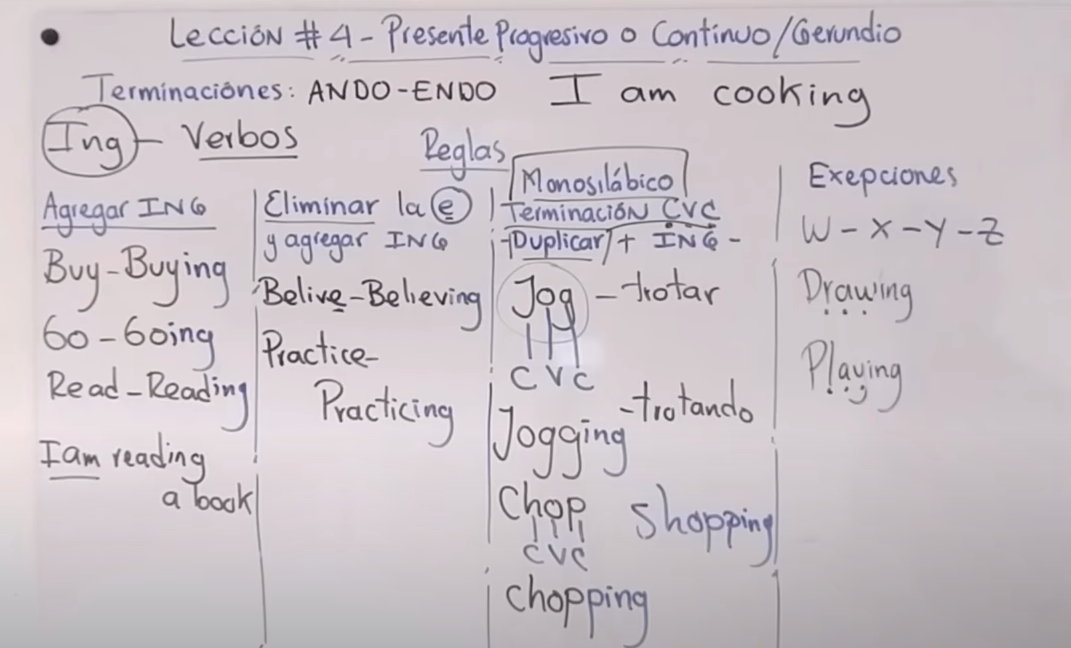 Lección #4 - Presente Progresivo o Continuo/Gerundio
Terminaciones: ANDO-ENDO I am cooking
Ing - Verbos
Reglas
Agregar ING
Buy-Buying
Go-Going
Read-Reading
I am reading
a book
Eliminar la e
y agregar ING
Belive-Believing
Practice-
Practicing
Monosilábico
Terminación CVC
-Duplicar + ING-
Jog - trotar
C V C
-trotando
Jogging
Chop Shopping
CVC
chopping
Exepciones
W-X-Y-Z
Drawing
Playing